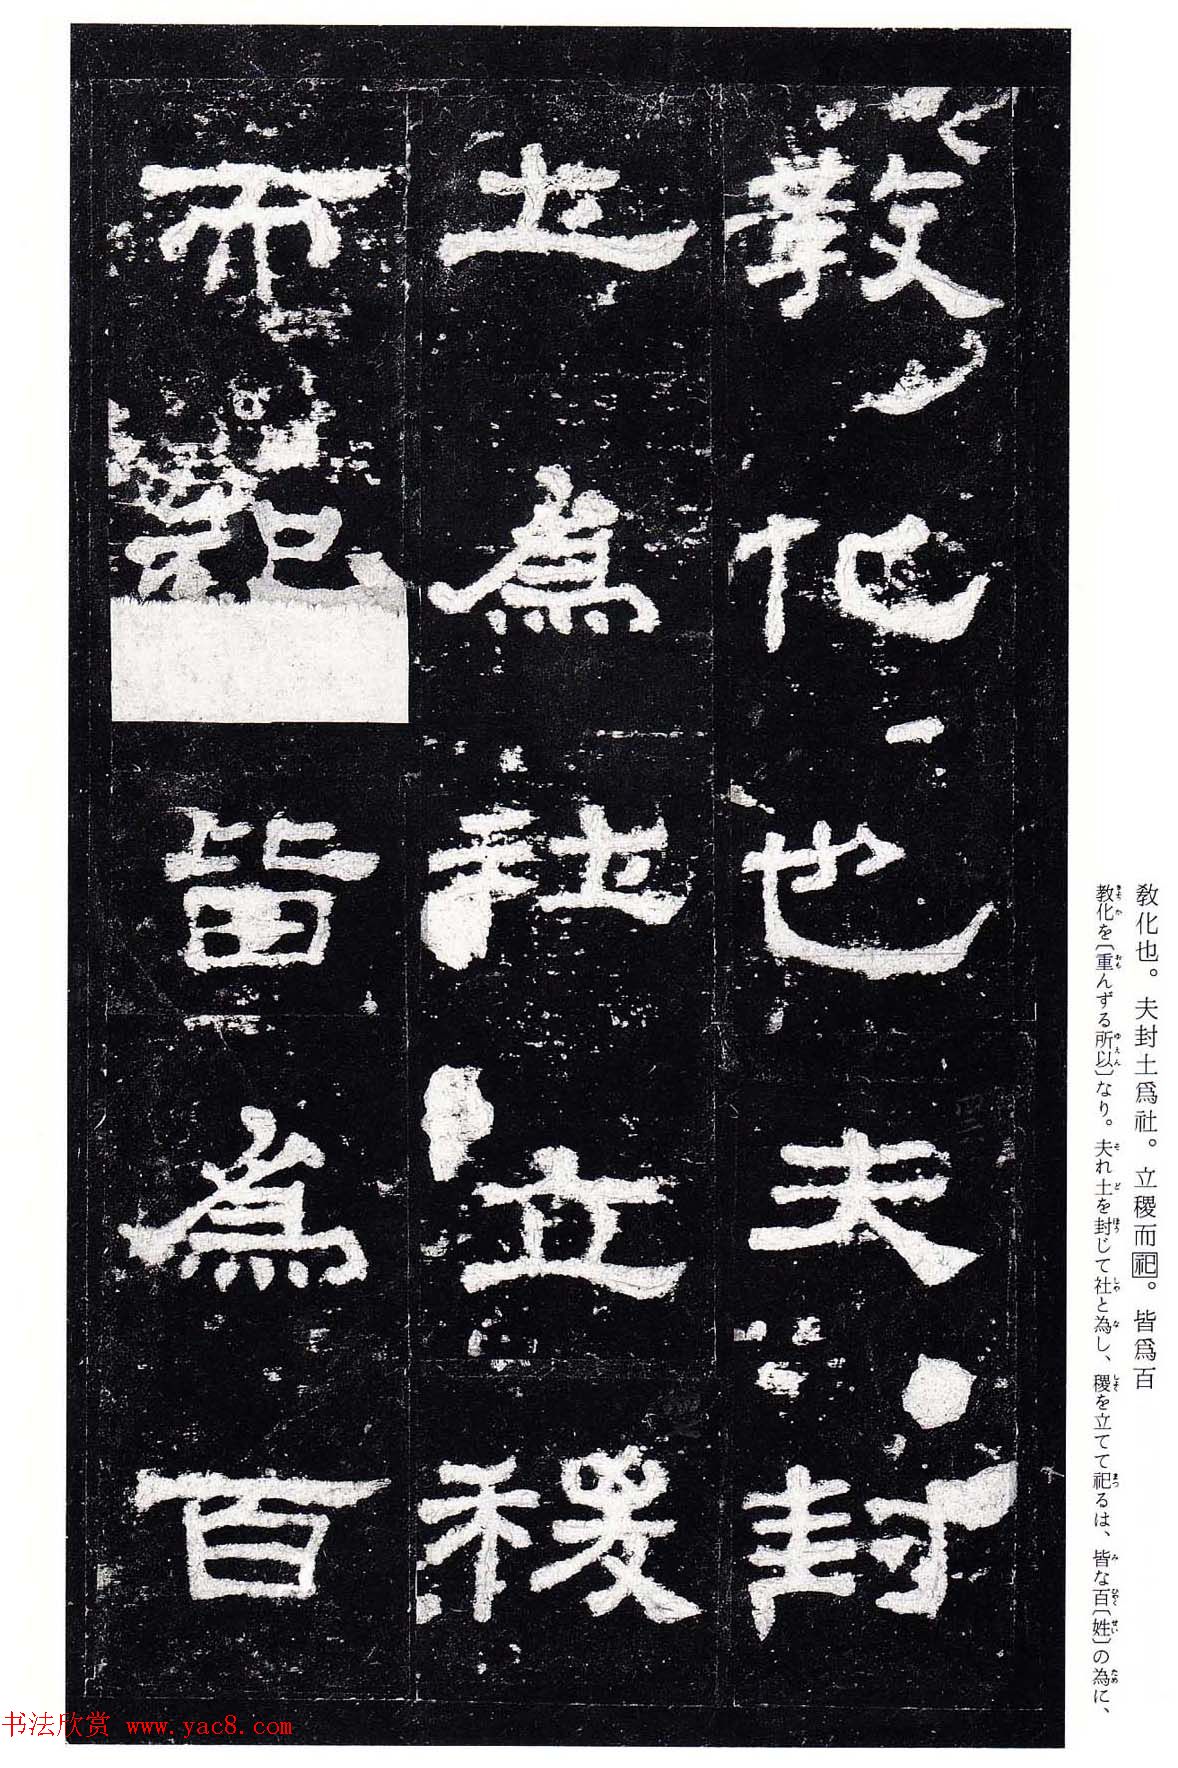 敎化也。夫封土爲社。立稷而祀。皆爲百
教化を〔重んずる所以〕なり。夫れ土を封じて社と為し、稷を立てて祀るは、皆な百〔姓〕の為に、
敎化也夫封
土爲社立稷
而祀皆爲百
书法欣赏 www.yac8.com